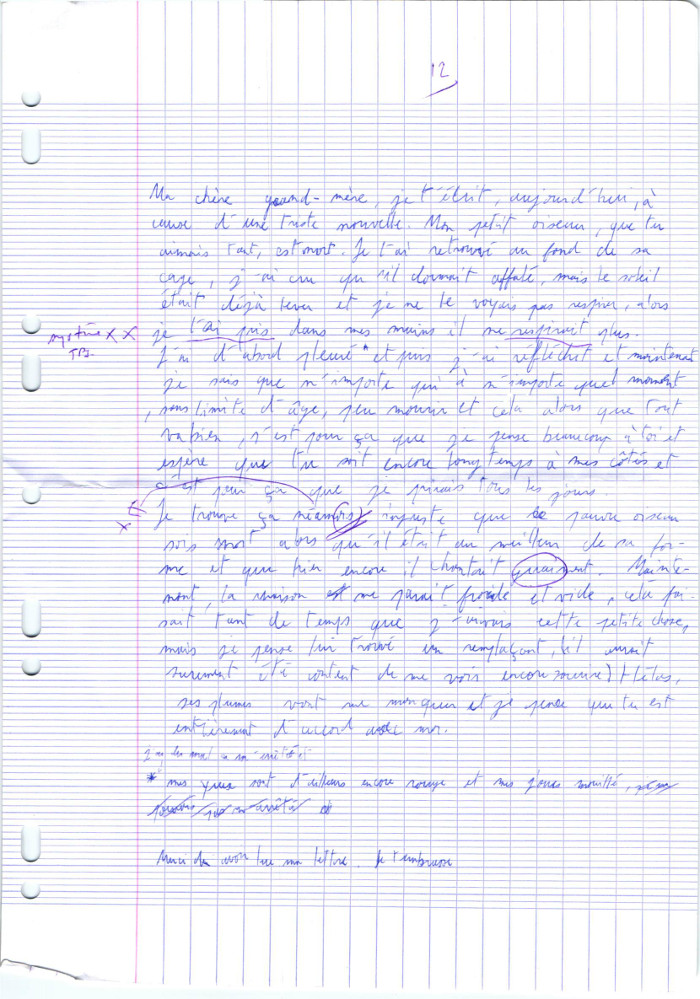 12
Ma chère grand-mère, je t'écrit, aujourd'hui, à
cause d'une triste nouvelle. Mon petit oiseau, que tu
aimais tant, est mort. Je t'ai retrouvé au fond de sa
cage, j'ai cru qu'il dormait affalé, mais le soleil
était déjà lever et je ne le voyais pas respirer, alors
je l'ai pris dans mes mains il me respirait plus.
J'ai d'abord pleuré * et puis j'ai réfléchit et maintenant
je sais que n'importe qui à n'importe quel moment
, sans limite d'âge, peu mourir et cela alors que tout
va bien, c'est pour ça que je pense beaucoup à toi et
espère que tu soit encore longtemps à mes côtés et
c'est pour ça que je prirais tous les jours.
Je trouve ça néanmois injuste que ce pauvre oiseau
sois mort alors qu'il était au meilleur de sa for-
me et que hier encore il chantait guaiment. Mainte-
nant, la maison me parait froide et vide, cela fai-
sait tant de temps que j'avais cette petite chose,
mais je pense lui trouvé un remplaçant, (il aurait
surement été content de me voir encore sourire) Hélas,
ses plumes vont me manquer et je pense que tu est
entièrement d'accord avec moi.
* mes yeux sont d'ailleurs encore rouge et mes joues mouillé,
Merci d'avoir lue ma lettre. Je t'embrasse